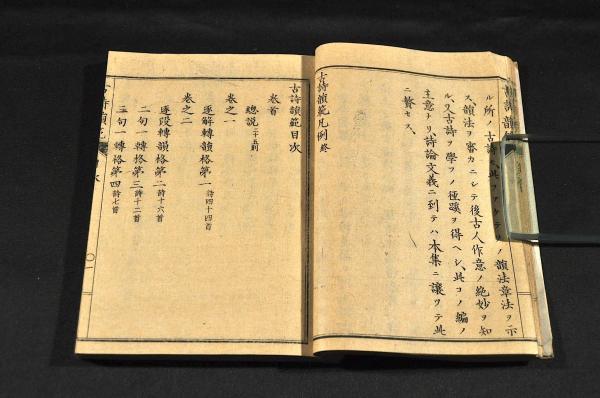 ル所ノ古詩
韻法章法ヲ示
ス、韻法ヲ審カニシテ後古人作意ノ絶妙ヲ知
ル、又古詩ヲ學フノ徑蹊ヲ得ヘシ、此コノ編ノ
主意ナリ、詩論文義ニ到テハ本集ニ讓リテ此
ニ贅セス、
古詩韻範凡例終
古詩韻範目次
卷首
總說二十五則
卷之一
逐解轉韻格第一詩四十四首
卷之二
逐段轉韻格第二詩十六首
二句一轉格第三詩十二首
三句一轉格第四詩七首